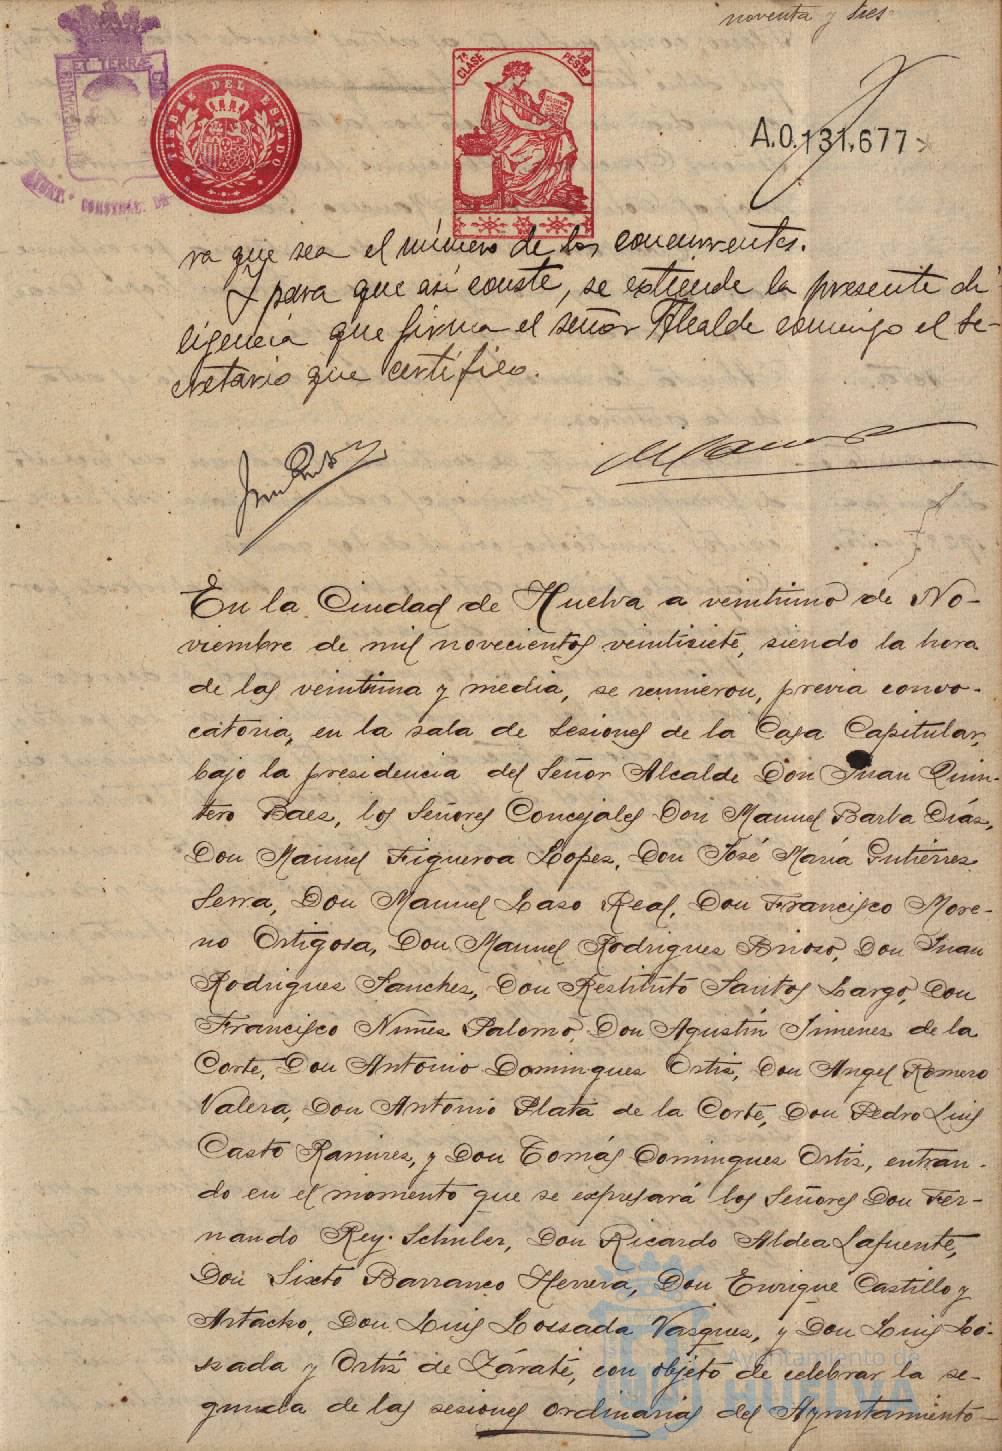 noventa y tres
ET TERRÆ
TIMBRE DEL ESTADO
7ª CLASE
PESTAS
A.0.131.677
AYUNT. CONSTNAL. DE
ra que sea el número de los concurrentes.
Y para que así conste, se extiende la presente di-
ligencia que firma el señor Alcalde conmigo el Se-
cretario que certifico.
En la Ciudad de Huelva a veintiuno de No-
viembre de mil novecientos veintisiete, siendo la hora
de las veintiuna y media, se reunieron, previa convo-
catoria, en la sala de Sesiones de la Casa Capitular,
bajo la presidencia del Señor Alcalde Don Juan Quin-
tero Baez, los Señores Concejales Don Manuel Barba Díaz,
Don Manuel Figueroa Lopez, Don José María Gutiérrez
Serra, Don Manuel Laso Real, Don Francisco More-
no Ortigosa, Don Manuel Rodrigues Brioso, Don Juan
Rodrigues Sanchez, Don Restituto Santos Largo, Don
Francisco Nuñez Palomo, Don Agustín Jimenez de la
Corte, Don Antonio Domingues Ortiz, Don Angel Romero
Valera, Don Antonio Plata de la Corte, Don Pedro Luis
Casto Ramires, y Don Tomás Domingues Ortiz, entran-
do en el momento que se expresará los Señores Don Fer-
nando Rey Schuler, Don Ricardo Aldea Lafuente,
Don Sixto Barranco Herrera, Don Enrique Castillo y
Artacho, Don Luis Lossada Vasques, y Don Luis Lo-
zada y Ortiz de Zárate, con objeto de celebrar la se-
gunda de las sesiones ordinarias del Ayuntamiento
Ayuntamiento de
HUELVA